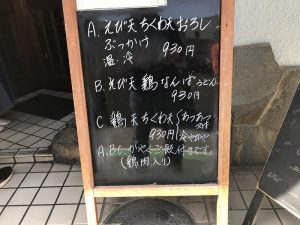 A. えび天ちくわ天おろし
ぶっかけ
温・冷 930円
B. えび天鶏なんばうどん
930円
C 鶏天ちくわ天 あつあつ
930円 冷やひや
A.B.C. かやくご飯付きです。
(鶏肉入り)